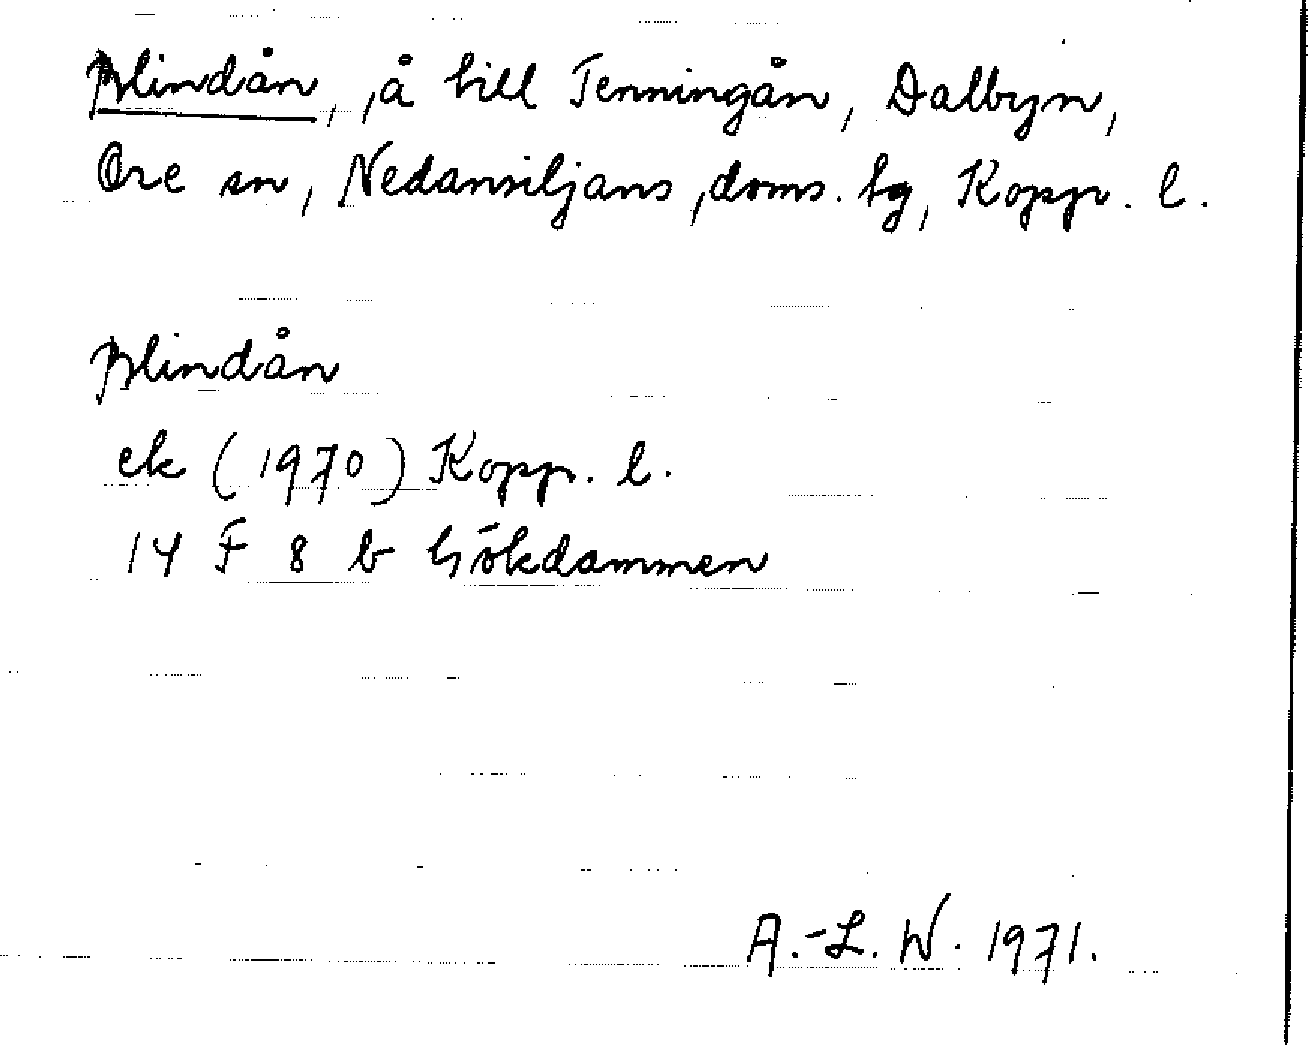 Blindån, å till Tenningån, Dalbyn,
Ore sn, Nedansiljans doms. tg, Kopp. l.
Blindån
ek (1970) Kopp. l.
14 F 8 b Gökdammen
A.-L. W. 1971.